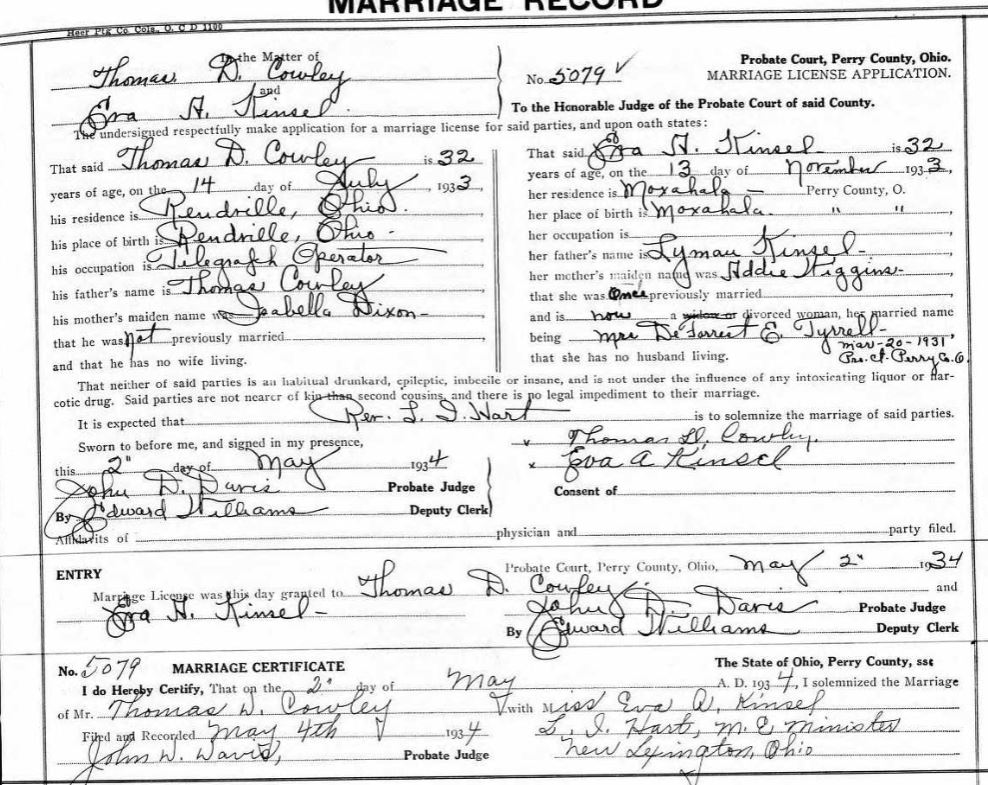 MARRIAGE RECORD
Heer Ptg Co Cols., O. C D 1100
In the Matter of
Thomas D. Cowley
and
Eva A. Kinsel.
No. 5079
Probate Court, Perry County, Ohio.
MARRIAGE LICENSE APPLICATION.
To the Honorable Judge of the Probate Court of said County.
The undersigned respectfully make application for a marriage license for said parties, and upon oath states:
That said Thomas D. Cowley is 32
years of age, on the 14 day of July, 1933,
his residence is Rendville, Ohio.
his place of birth is Rendville, Ohio -
his occupation is Telegraph Operator
his father's name is Thomas Cowley
his mother's maiden name was Isabella Dixon -
that he was not previously married
and that he has no wife living.
That said Eva A. Kinsel - is 32
years of age, on the 13 day of November 1933,
her residence is Moxahala - Perry County, O.
her place of birth is Moxahala. " "
her occupation is
her father's name is Lyman Kinsel -
her mother's maiden name was Addie Higgins -
that she was Once previously married
and is now a widow or divorced woman, her married name
being Mrs DeForrest E. Tyrrell -
Mar-20-1931
that she has no husband living. Pro. Ct. Perry Co. O.
That neither of said parties is an habitual drunkard, epileptic, imbecile or insane, and is not under the influence of any intoxicating liquor or nar-
cotic drug. Said parties are not nearer of kin than second cousins, and there is no legal impediment to their marriage.
It is expected that Rev. L. I. Hart is to solemnize the marriage of said parties.
Sworn to before me, and signed in my presence,
this 2" day of May 1934
John D. Davis Probate Judge
By Edward Williams Deputy Clerk
x Thomas D. Cowley.
x Eva A Kinsel
Consent of
Affidavits of physician and party filed.
ENTRY
Probate Court, Perry County, Ohio, May 2" 1934
Marriage License was this day granted to Thomas D. Cowley and
Eva A. Kinsel -
John D. Davis Probate Judge
By Edward Williams Deputy Clerk
No. 5079 MARRIAGE CERTIFICATE
The State of Ohio, Perry County, ss:
I do Hereby Certify, That on the 2" day of May A. D. 1934, I solemnized the Marriage
of Mr. Thomas D. Cowley with Miss Eva A. Kinsel
Filed and Recorded May 4th 1934
L. I. Hart, M. E. Minister
John W. Davis, Probate Judge
New Lexington, Ohio